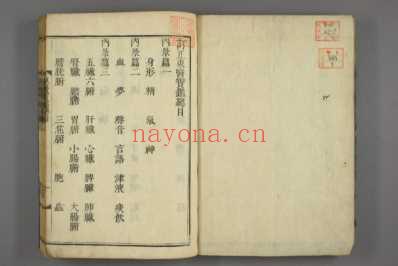 訂正東醫寶鑑總目
內景篇一
身形 精 氣 神
內景篇二
血 夢 聲音 言語 津液 痰飲
內景篇三
五臟六腑 肝臟 心臟 脾臟 肺臟
腎臟 膽腑 胃腑 小腸腑 大腸腑
膀胱腑 三焦腑 胞 蟲
nayona.cn